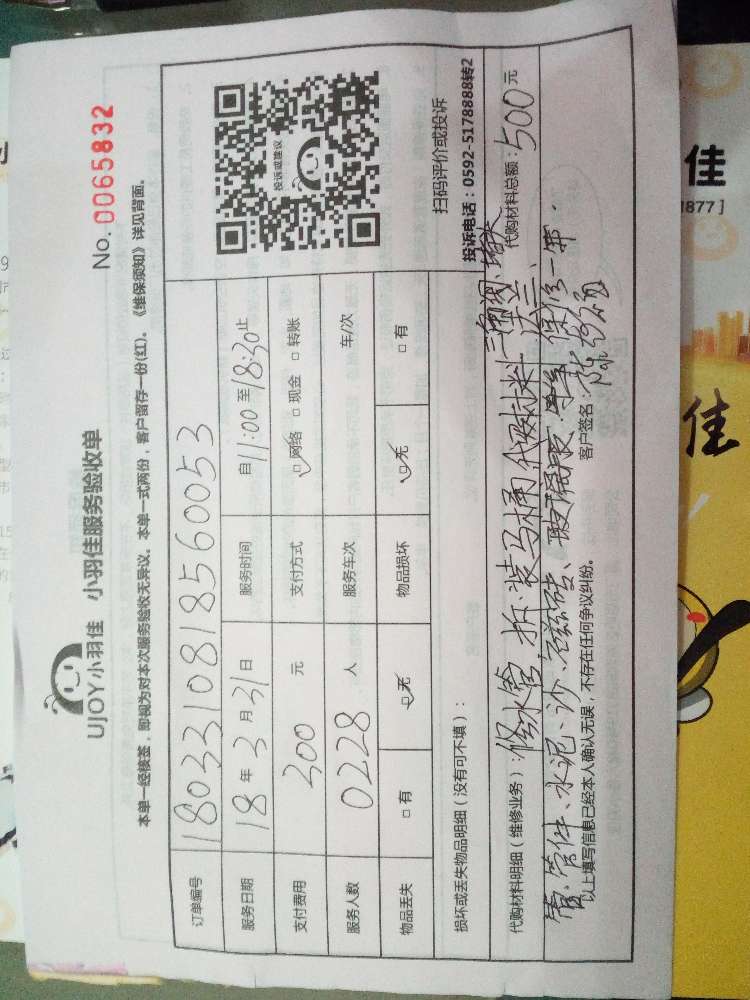 UJOY小羽佳 小羽佳服务验收单
No. 0065832
本单一经核签，即视为对本次服务验收无异议。本单一式两份，客户留存一份(红)。《维保须知》详见背面。
订单编号 1803310818560053
服务日期 18 年 3 月 31 日 服务时间 自 11:00 至 18:30 止
支付费用 300 元 支付方式 ☑网络 □现金 □转账
服务人数 0228 人 服务车次 车/次
物品丢失 □有 ☑无 物品损坏 ☑无 □有
投诉或建议
扫码评价或投诉
投诉电话：0592-5178888转2
损坏或丢失物品明细（没有可不填）：
代购材料明细（维修业务）：修水管 拆装马桶 代购材料 代购材料总额：500 元
管、管件、水泥、沙、瓷砖、
以上填写信息已经本人确认无误，不存在任何争议纠纷。 客户签名：
佳
1877]
佳